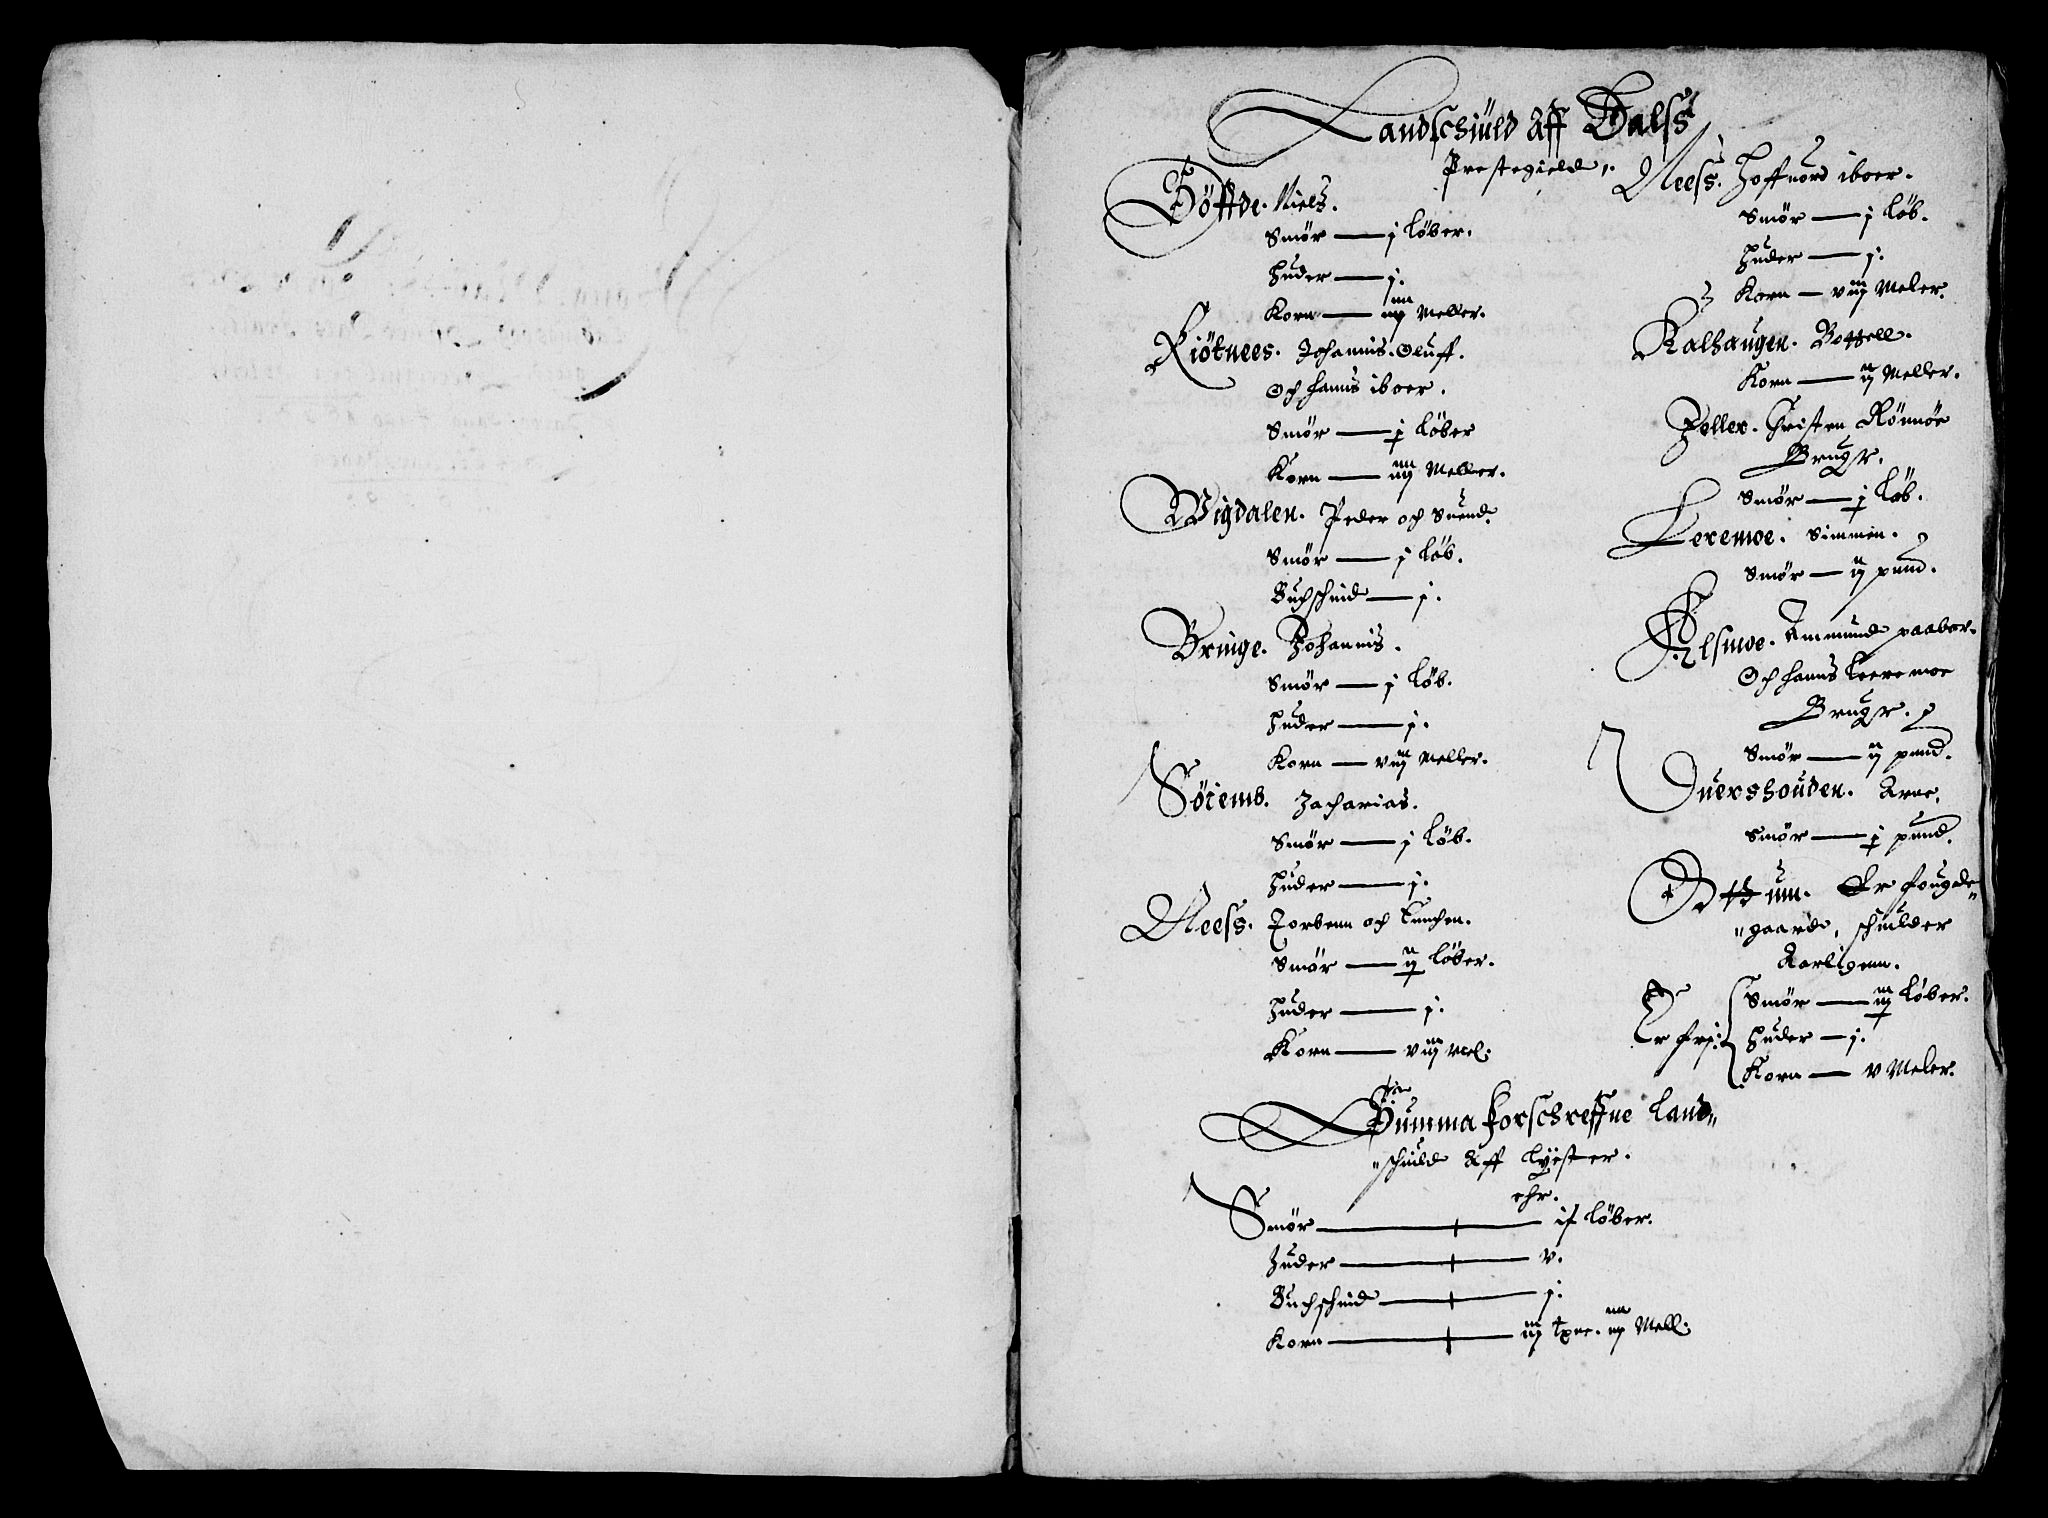 Landschiuld aff Dalss
Prestegield.
Döffde. Niels.
Smör — j Løber.
Huder — j.
Korn — iiij Meller.
Kiötnees. Johannis. Oluff.
Och hanns iboer.
Smör — j Løber
Korn — iiij Meller.
Wigdalen. Peder och Suend.
Smör — j Løb.
Buchschind — j.
Bringe. Johannis.
Smör — j Løb.
Huder — j.
Korn — viij Meller.
Söiemb. Zacharias.
Smör — j Løb.
Huder — j.
Neess. Torbenn och
Smör — ij Løber.
Huder — j.
Korn — viij Mel:
Neess. Hoffuord iboer.
Smör — j Løb.
Huder — j.
Korn — viij Meler.
Kalhaugen. Bottell.
Korn — ij Meller.
Feller. Christen Rönnöe
Brugr.
Smör — j Løb.
Leremoe. Simmen.
Smör — ij pund.
Elsmoe. Ammund paabor.
Och hanns Leeremoe
Brugr.
Smör — ij pund.
Duershouden. Arne.
Smör — j pund.
Ottum. Er fougde-
"gaard, schulder
Aarligenn.
Er frj:
Smör — iij Løber.
Huder — j.
Korn — v Meler.
Summa forschreffne Land"
"schuld Aff Lyster.
ehr.
Smör — if Løber.
Huder — v.
Buchschind — j.
Korn — iij txne. iiij Mell: